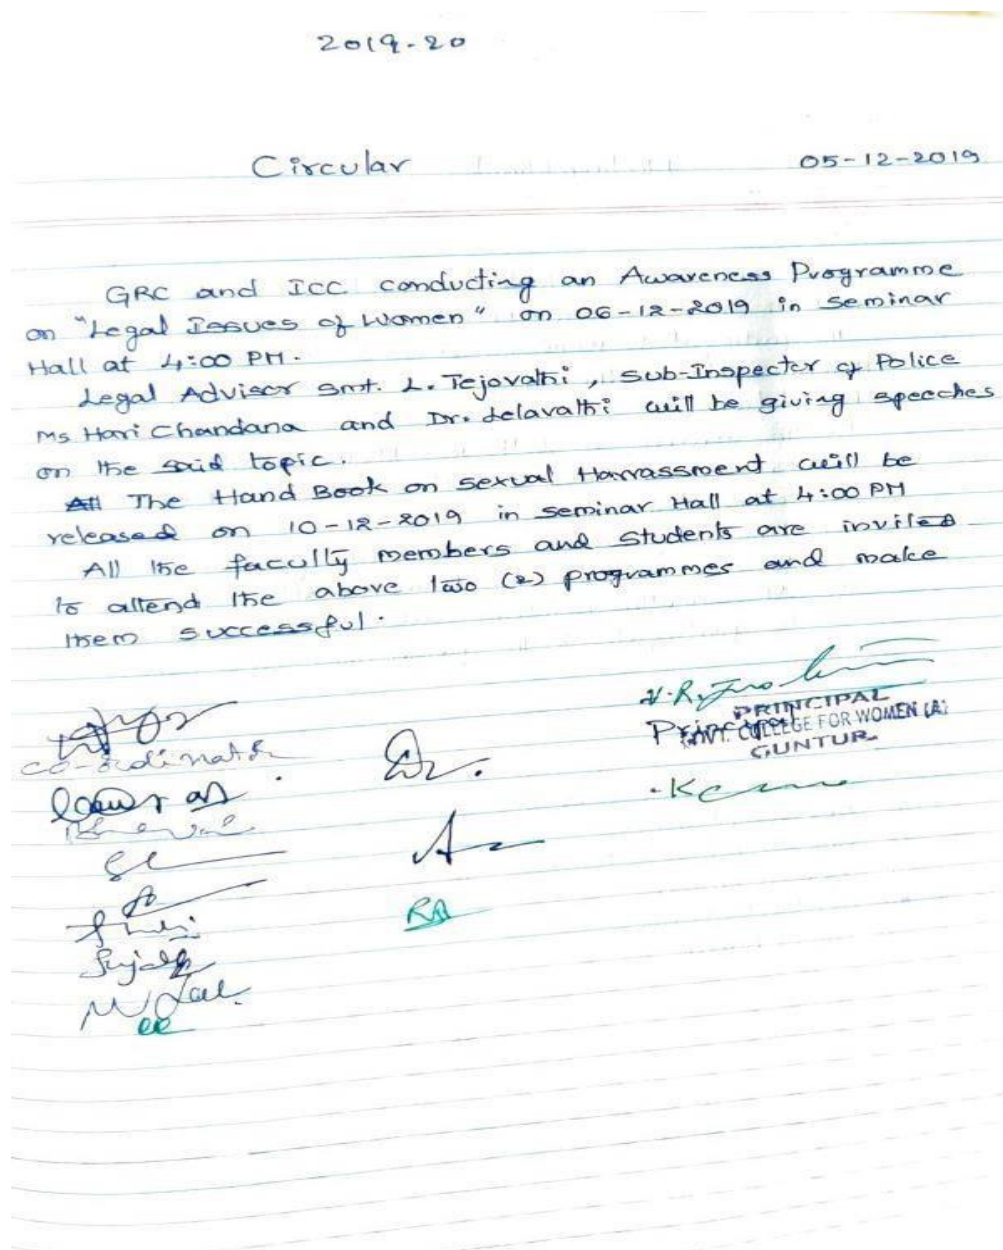 2019-20
Circular 05-12-2019
GRC and ICC conducting an Awareness Programme
on "Legal Issues of Women" on 06-12-2019 in seminar
Hall at 4:00 PM.
Legal Advisor smt. L. Tejovathi, sub-Inspector of Police
Ms Hari Chandana and Dr. Lelavathi will be giving speeches
on the said topic.
All The Hand Book on sexual Harrassment will be
released on 10-12-2019 in seminar Hall at 4:00 PM
All the faculty members and students are invited
to attend the above two (2) programmes and make
them successful.
V.R.
PRINCIPAL
Principal
GOVT. COLLEGE FOR WOMEN (A)
GUNTUR
co-ordinator
RA